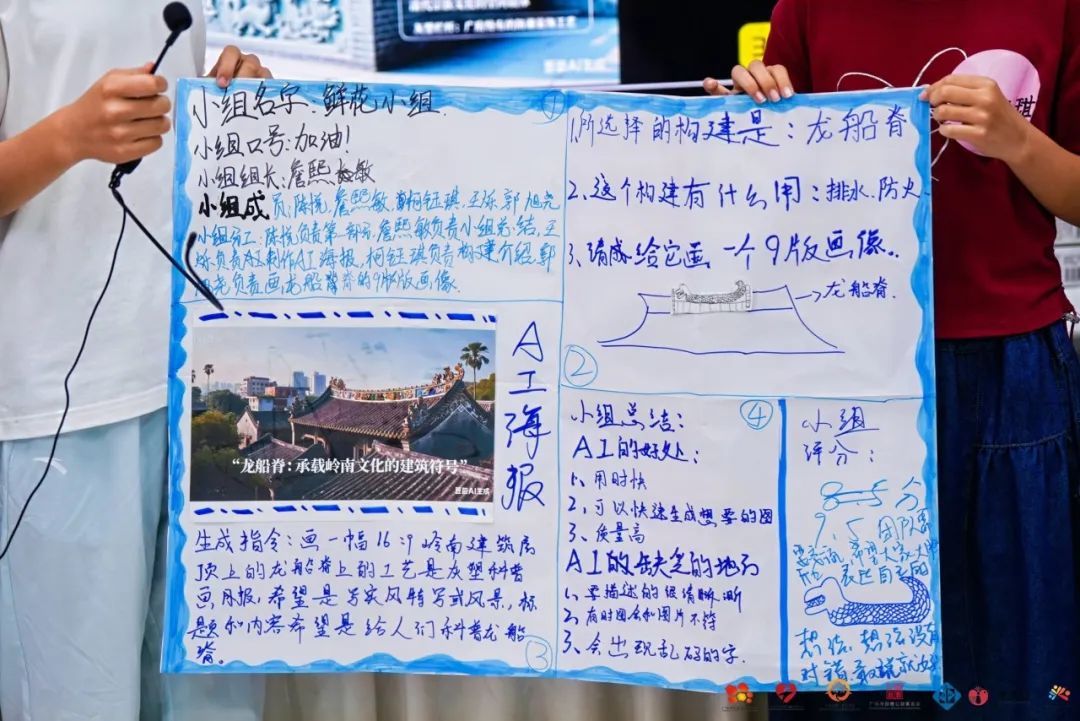 小组名字:鲜花小组.
小组口号:加油!
小组组长:詹熙敏
小组成员:陈悦,詹熙敏,柯钰琪,王烁,郭旭亮
小组分工:陈悦负责第一部分,詹熙敏负责小组总结,王
烁负责AI制作AI海报,柯钰琪负责构建介绍,郭
旭亮负责画龙船脊的9版版画像.
①
1.所选择的构建是:龙船脊
2.这个构建有什么用:排水.防火.
3、请你给它画一个9版画像.
龙船脊.
②
AI海报
“龙船脊:承载岭南文化的建筑符号”
豆包AI生成
生成指令:画一幅16:9岭南建筑房
顶上的龙船脊上的工艺是灰塑科普
画风报,希望是写实风特写或风景,标
题和内容希望是给人们科普龙船
脊。
③
小组总结:
④
AI的好处:
1、用时快
2、可以快速生成想要的图
3、质量高
AI的缺乏的地方
1、要描述的很清晰
2、有时图会和图片不符
3、会出现乱码的字.
小组
评分:
9.5
表达自己的
想法,想法没有
对错
琪
豆包AI生成